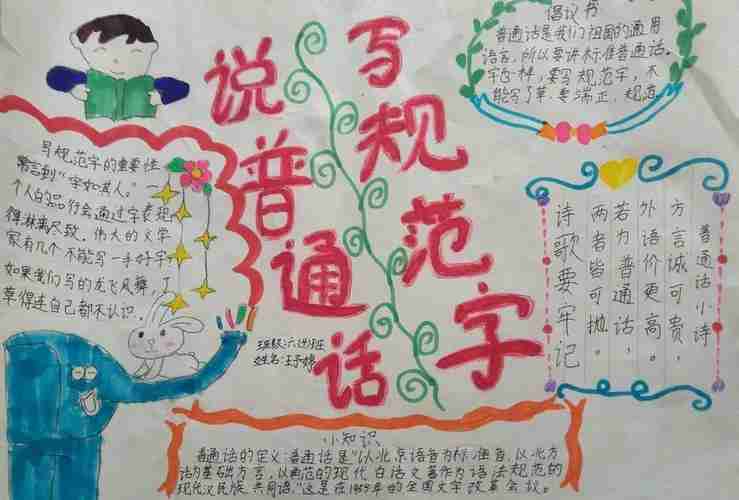 说普通话
写规范字
倡议书
普通话是我们祖国的通用
语言，所以要讲标准普通话。
写规范字，不
能写了草，要端正，规范
写规范字的重要性
寓言到“字如其人。”一
个人的品行会通过字表现
得淋漓尽致。伟大的文学
家有几个不能写一手好字，
如果我们写的龙飞凤舞，了
草得连自己都不认识。
班级：六
姓名：王予婷
普通话小诗
方言诚可贵，
外语价更高。
若为普通话，
两者皆可抛。
诗歌要牢记
小知识
普通话的定义：普通话是“以北京语音为标准音，以北方
话为基础方言，以典范的现代白话文著作为语法规范的
现代汉民族共同语。”这是在1955年的全国文字改革会议。